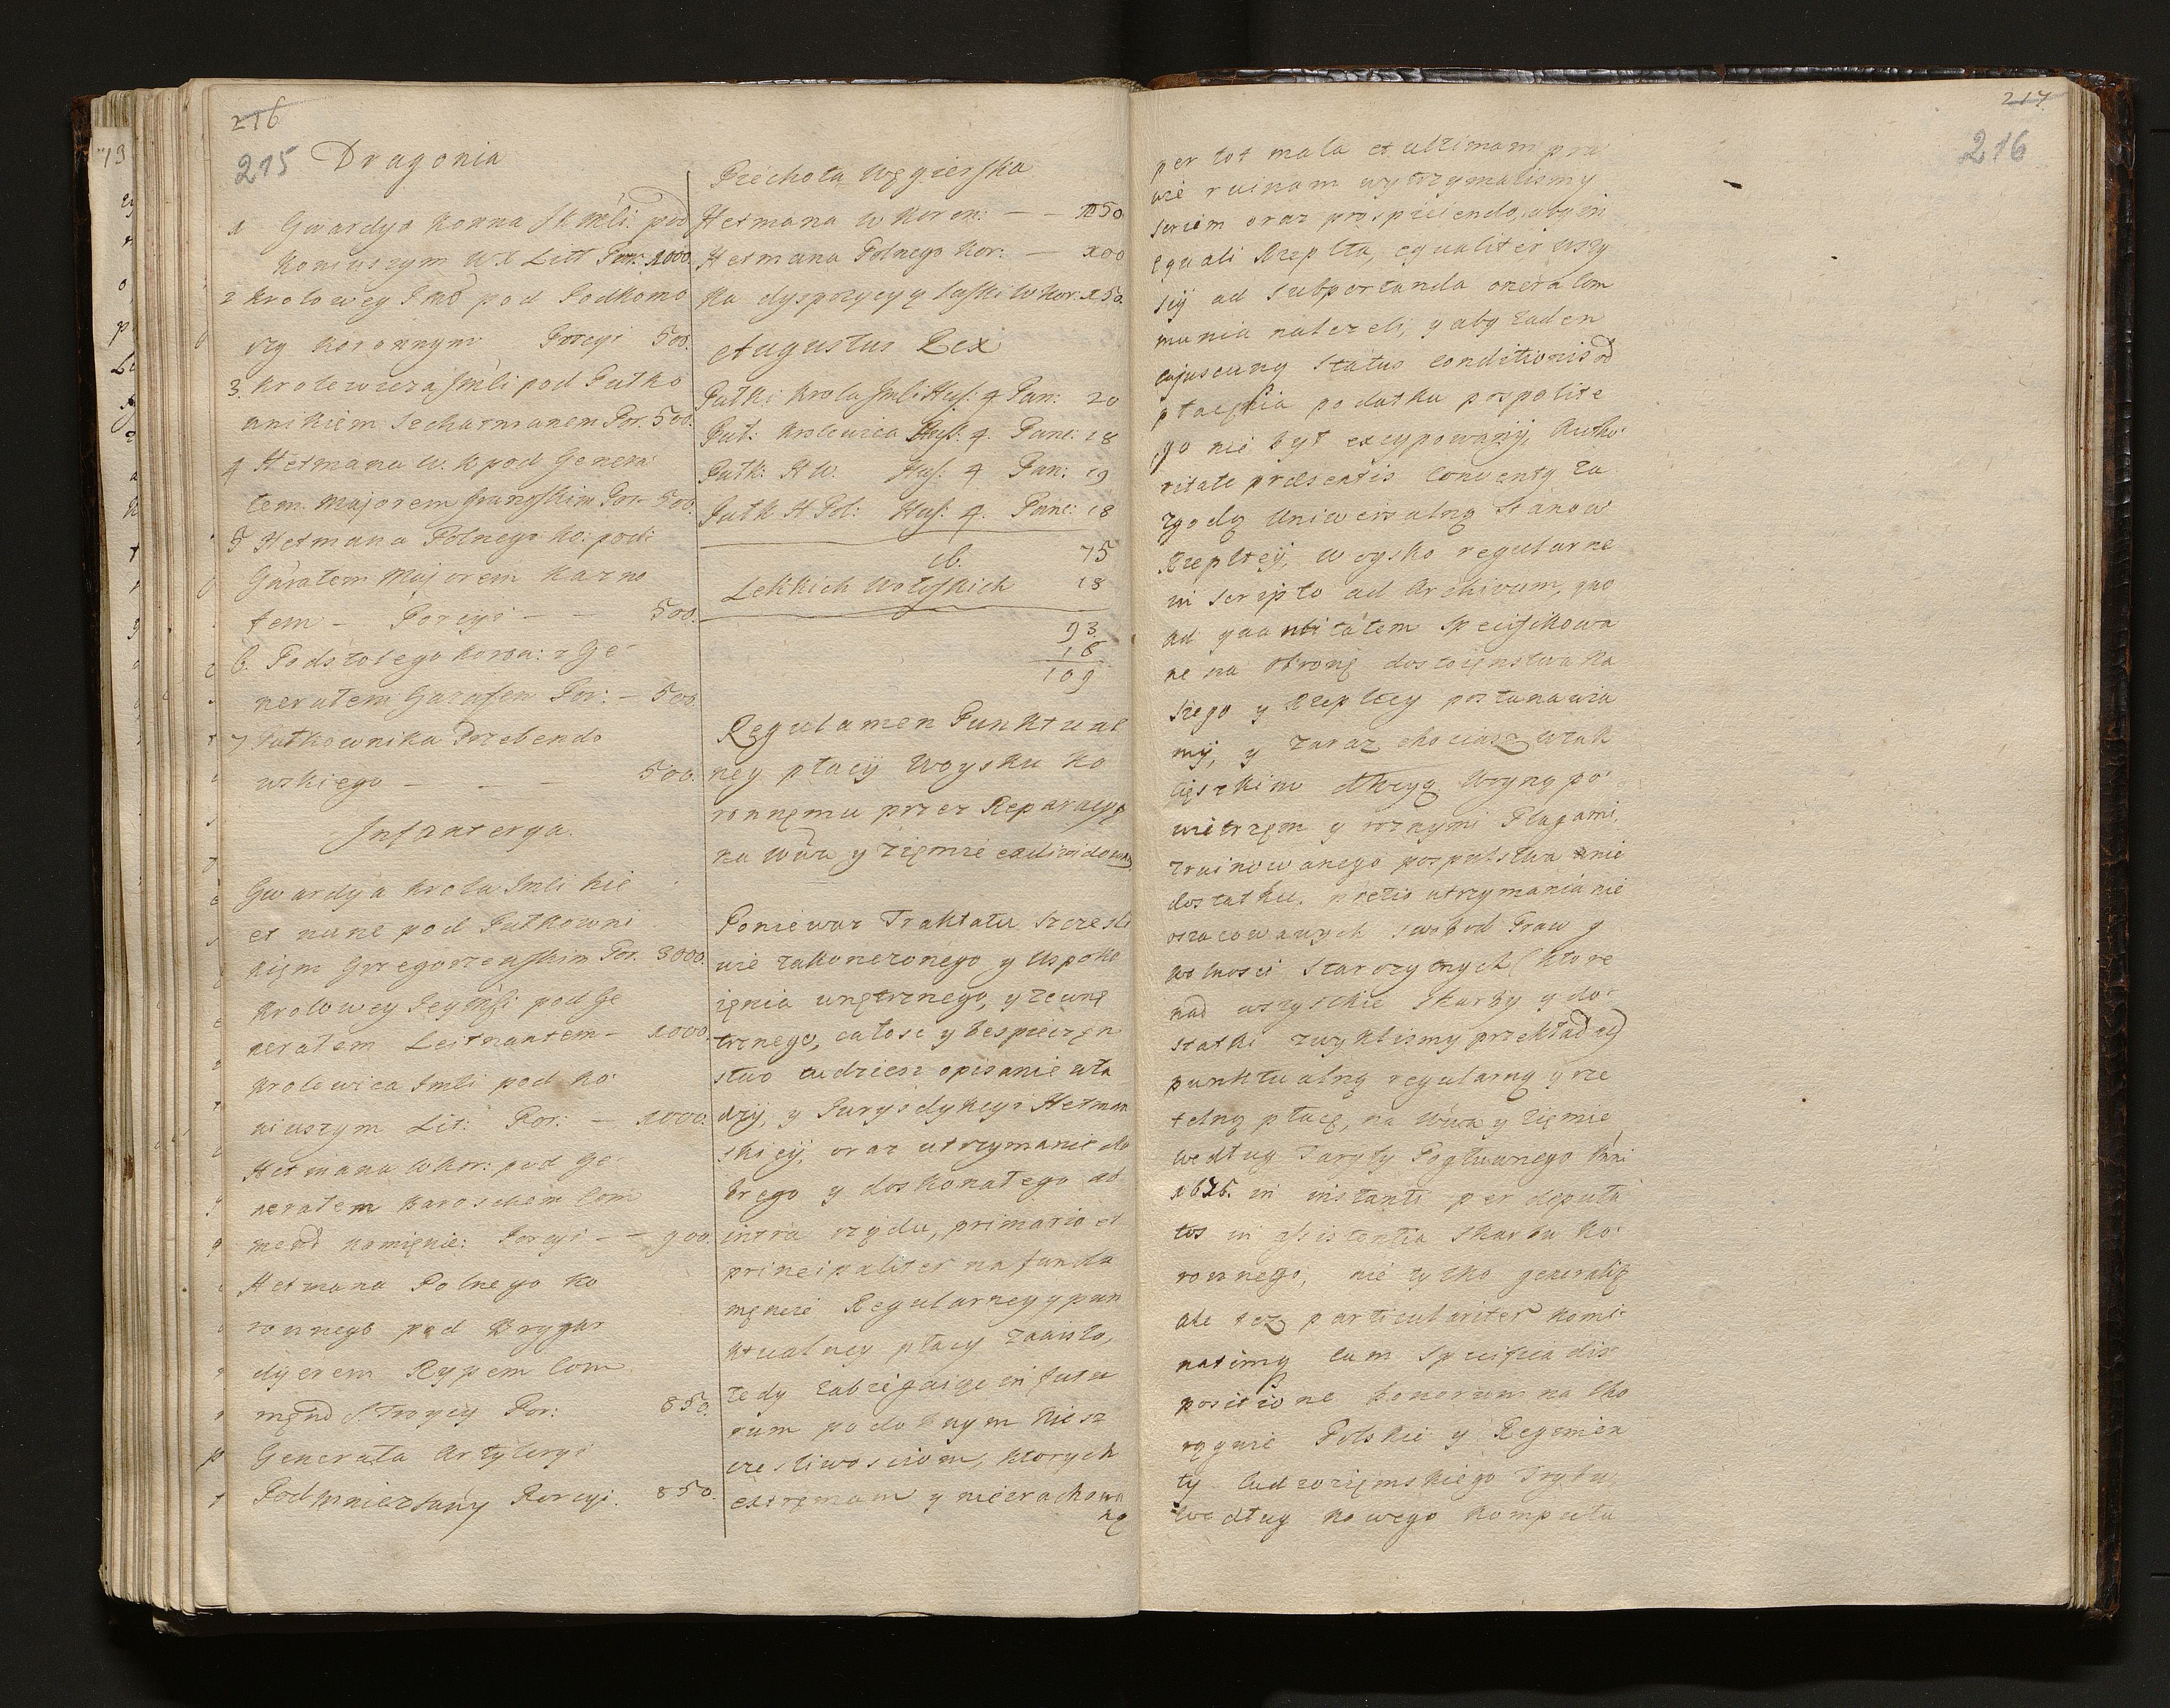 216
215 Dragonia
1 Gwardya Konna JKMsli: pod
Koniuszym WX Litt Por: 1000.
2 Krolowey Jmd pod Podkomo
rzy Koronnym Porcyi 500.
3. Krolewicza Jmsli pod Pułko
wnikiem Sechatmanem Por. 500.
4 Hetmana W. K pod Genera
łem Majorem Por. 500.
5 Hetmana Polnego Ko: pod
Gńrałem Majorem Kazno
tem - Porcyi - - 500.
6. Podstolego Koron: z Ge-
nerałem Por: - 500.
7 Pułkownika Przebendo
wskiego - - - 500.
Infanterya.
Gwardya Krola Jmsli kie
et nunc pod Pułkowni
kięm Gregorzewskim Por. 3000.
Krolowey Jeymsli pod Ge
nerałem Leitnantem - 1000.
Krolewica Jmsli pod Ko
niuszym Lit: Por: - 1000.
Hetmana W Kor: pod Ge-
nerałem Com
mend Kamięnie: Porcyi - - 900.
Hetmana Polnego Ko
ronnego pod Brygar
dyerem Rypem Com
męnd S. Troycy Por: 850.
Generała Artyleryi
Porcyi. 850.
Piechota Węgierska
Hetmana W Koron: - - 150
Hetmana Polnego Kor: - 100
Na dyspozycyą Laski W Kor: 150.
Augustus Rex
Pułk: Krola Jmsli Hus: 4 Pan: 20
Puł: Krolewica Hus: 4. Panc: 18
Pułk: H W. Hus: 4 Pan: 19
Pułk H Pol: Hus: 4. Panc: 18
75
Lekkich Wołoskich 18
93
16
109
Regulamen Punktual
ney płacy Woysku Ko
ronnęmu przez Reparacyą
na Wdwa y Zięmie
Poniewaz Traktatu Szczęsli
wie zakonczonego y Uspoko
ięnia wnętrznego, y zewnę
trznego, całosc y bespieczęn
stwo tudziesz opisanie wła
dzy, y Jurysdykcyi Hetman
skiey, oraz utrzymanie do
brego y doskonałego ab
intra rządu, primario et
principaliter na funda
męncie Regularney y pun
ktualney płacy zawisło,
tedy zabiegaiąc in futu
rum podobnym Niesz
częsliwosciom, ktorych
extręmam y niezrachowa
ną
217.
216
per tot mala et ultimam pra
wie ruinam wytrzymalismy
seriem oraz prospiciendo, aby in
equali Rzeplta, equaliter wszy
scy ad subportanda onera com
munia nalezeli, y aby zaden
cujuscunq status conditionis od
płacęnia podatku pospolite
go nie był excypowany, Autho
ritate praesentis Conventq za
zgodą Uniwersalną Stanow
Rzepltey, woysko regularne
in scripto ad Archivum, quo
ad quantitatem specifikowa
ne na obronę dostoięnstwa Na
szego y Rzepltey postanawia
my, y zaraz chociasz w tak
cięszkim Woyną po
wietrzęm y roznymi Plagami,
zruinowanego pospulstwa nie
dostatku, precio utrzymania nie
oszacowanych swobod Praw y
wolnosci Starozytnych (ktore
nad wszystkie skarby y do
statki zwyklismy przekładac)
punktualną regularną y rze
telną płacę, na Wdwa y Zięmie
według Taryfy Pogłownego Anni
1676. in instanti per deputa
tos in assistentia Skarbu Ko
ronnego, nie tylko generalitę
ale tez particulariter nomi
natimq cum specifica dis
positione bonorum na Cho
rągwie Polskie y Regimen
ty Cudzozięmskiego Trybu
według nowego Komputu